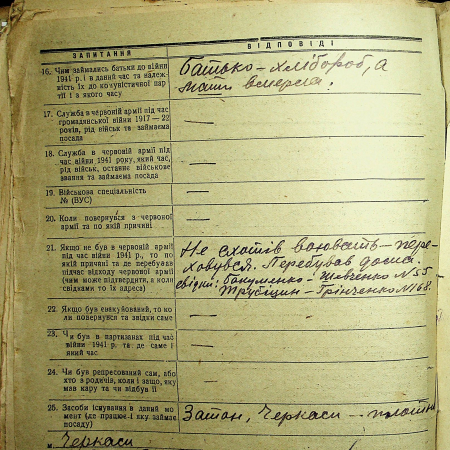 ЗАПИТАННЯ
ВІДПОВІДІ
16. Чим займались батьки до війни
1941 р. і в даний час та належ-
ність їх до комуністичної пар-
тії і з якого часу
батько - хлібороб, а
мати вмерла.
17. Служба в червоній армії під час
громадянської війни 1917—22
років, рід військ та займаєма
посада
—
18. Служба в червоній армії під
час війни 1941 року, який час,
рід військ, останнє військове
звання та займаєма посада
—
19. Військова спеціальність
№ (ВУС)
—
20. Коли повернувся з червоної
армії та по якій причині
—
21. Якщо не був в червоній армії
під час війни 1941 р., то по
якій причині та де перебував
підчас відходу червоної армії
(чим може підтвердити, а коли
свідками то їх адреса)
Не схотів воювать — пере-
ховувся. Перебував дома.
свідки: Бакуменко - Шевченко N 55 -
Трубіцин - Грінченко N 168.
22. Якщо був евакуйований, то ко-
ли повернувся та звідки саме
—
23. Чи був в партизанах під час
війни 1941 р. та де саме і
який час
—
24. Чи був репресований сам, або
хто з родичів, коли і защо, яку
мав кару та чи відбув її
—
25. Засоби існування в даний мо-
мент (де працює і яку займає
посаду)
Затон, Черкаси -
Черкаси